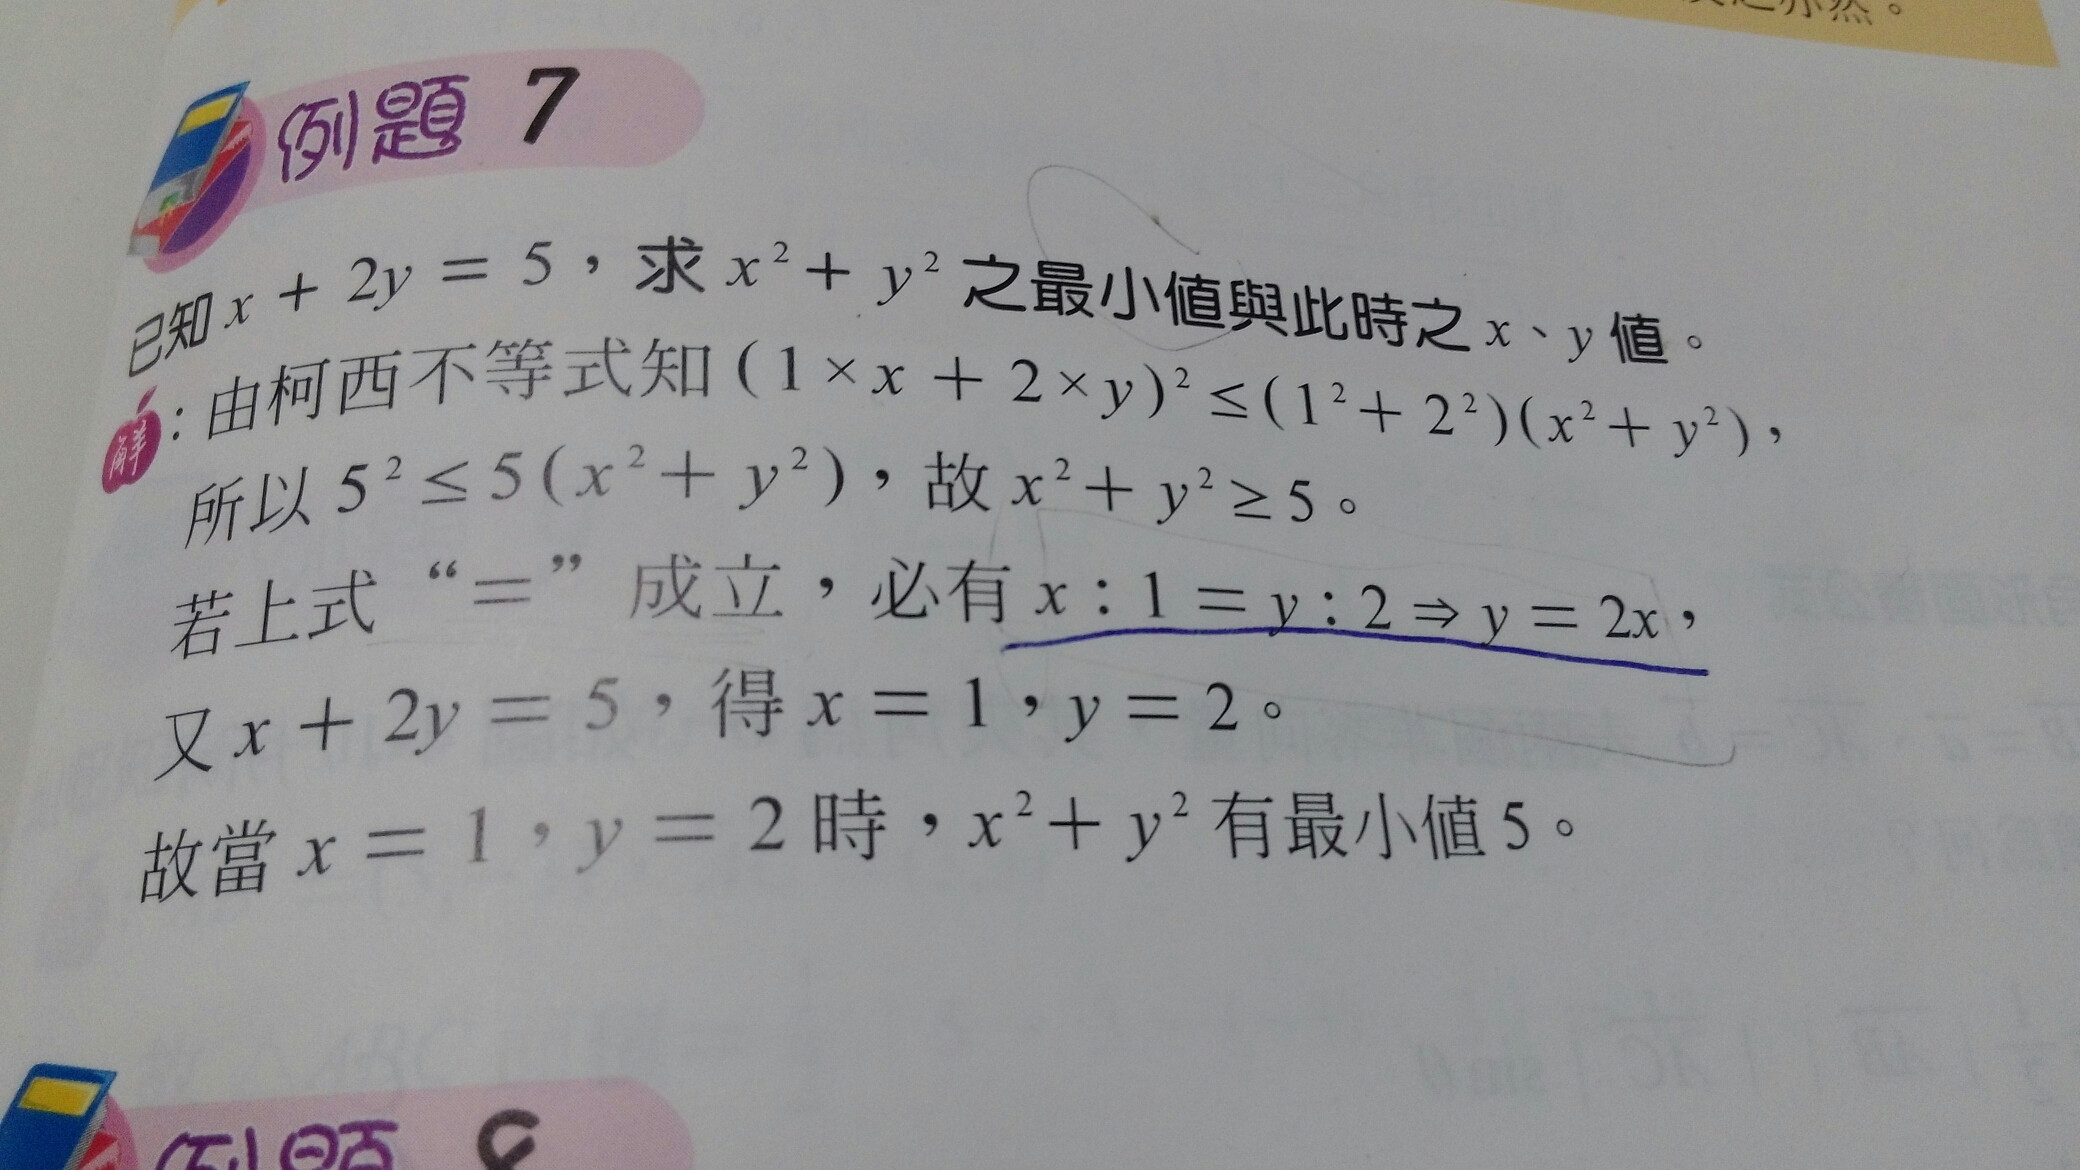 亦然。
例題 7
已知 x + 2y = 5，求 x² + y² 之最小值與此時之 x、y 值。
解：由柯西不等式知 (1 × x + 2 × y)² ≤ (1² + 2²)(x² + y²)，
所以 5² ≤ 5(x² + y²)，故 x² + y² ≥ 5。
若上式“=”成立，必有 x : 1 = y : 2 ⇒ y = 2x，
又 x + 2y = 5，得 x = 1，y = 2。
故當 x = 1，y = 2 時，x² + y² 有最小值 5。
例題